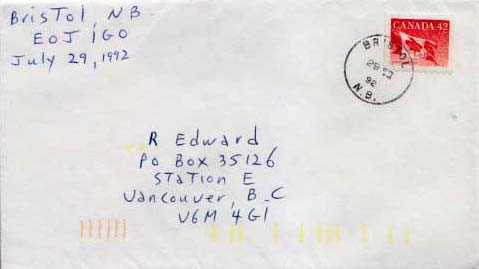 Bristol, NB
E0J 1G0
July 29, 1992
CANADA 42
BRISTOL
92
N.B.
R Edward
Po Box 35126
Station E
Vancouver, B.C
V6M 4G1